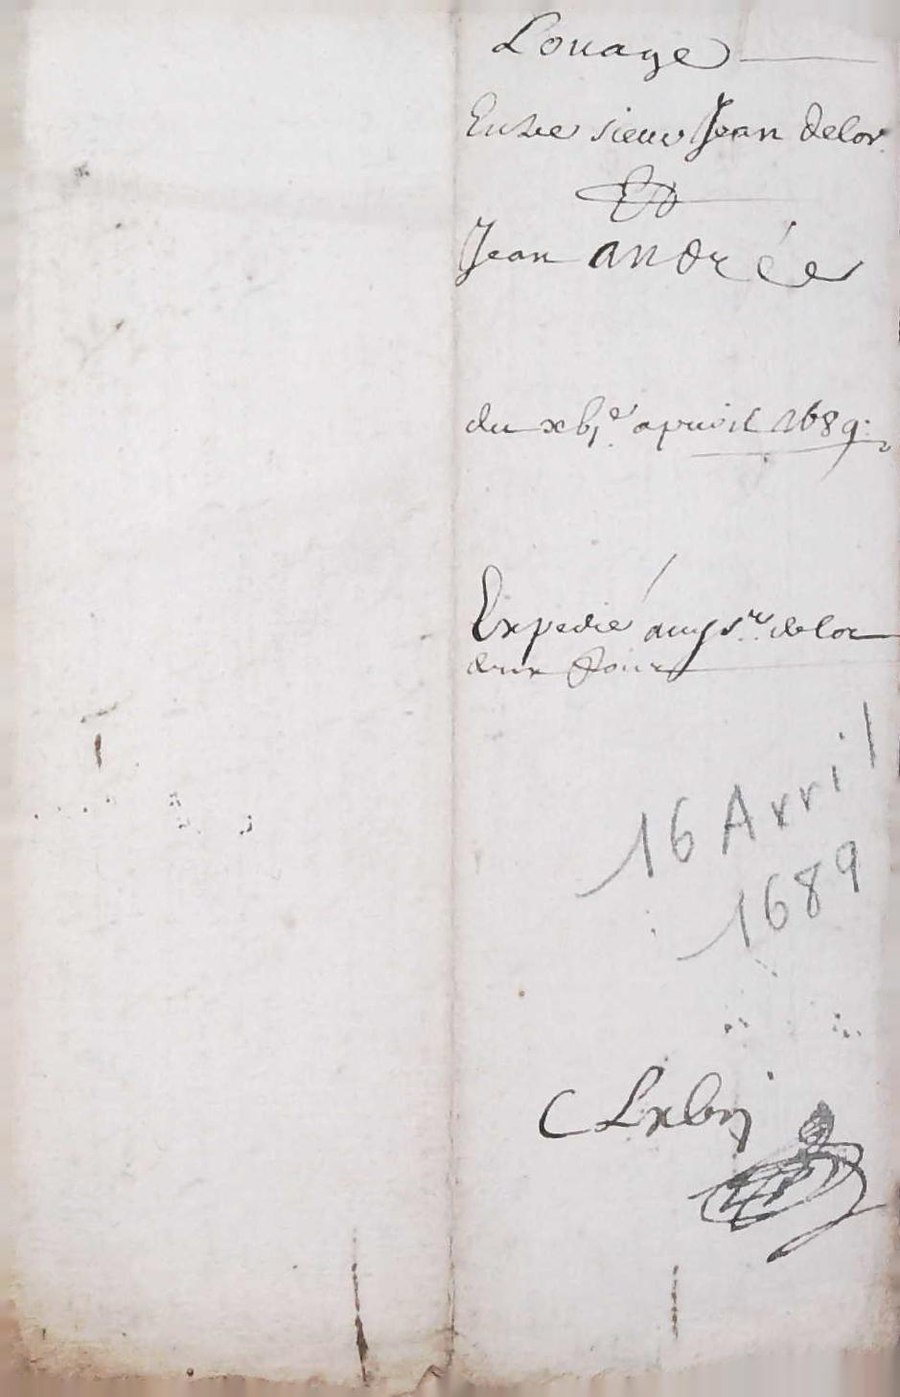 Louage
Entre sieur Jean delor
Et
Jean andrée
du xbj.e apvril 1689:
Expedié aud sr. delor
deux fois
16 Avril
1689
C Lxbj